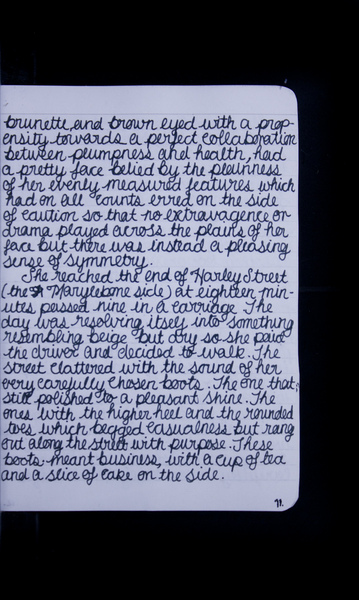 brunette, and brown eyed with a prop-
ensity towards a perfect collaboration
between plumpness and health, had
a pretty face belied by the plainness
of her evenly measured features which
had on all counts erred on the side
of caution so that no extravagence or
drama played across the plains of her
face but there was instead a pleasing
sense of symmetry.
She reached the end of Harley Street
(the Marylebone side) at eighteen min-
utes passed nine in a carriage. The
day was resolving itself into something
resembling beige but dry so she paid
the driver and decided to walk. The
street clattered with the sound of her
very carefully chosen boots. The one that
still polished to a pleasant shine. The
ones with the higher heel and the rounded
toes which begged casualness but rang
out along the street with purpose. These
boots meant business, with a cup of tea
and a slice of cake on the side.
71.